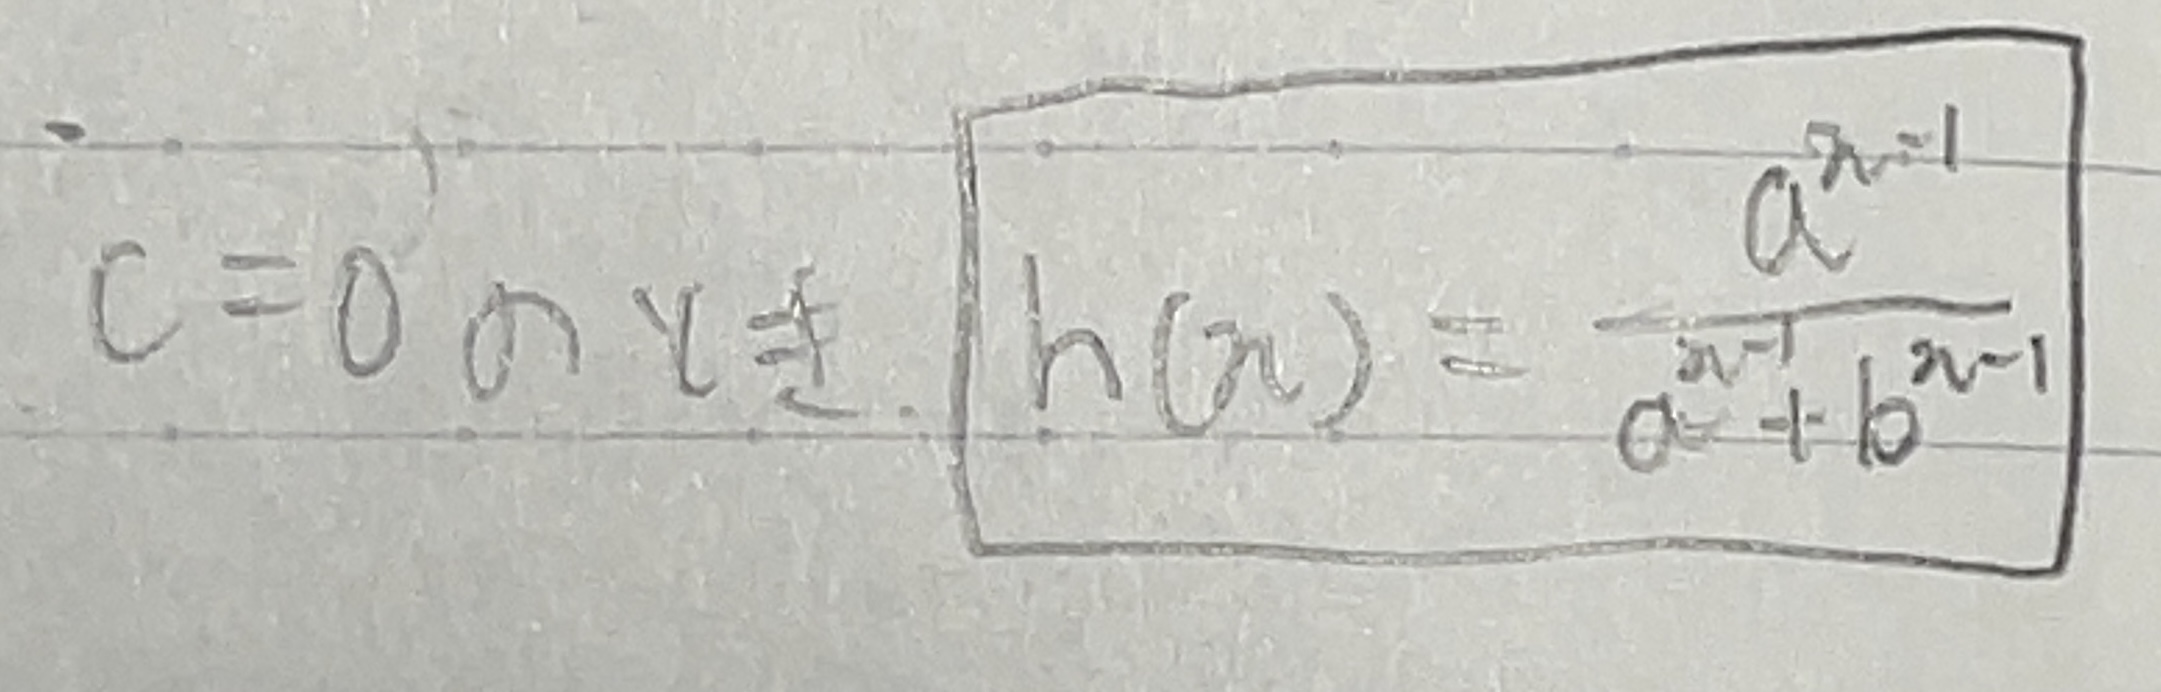 C=0のとき. h(x) = \frac{a^{x-1}}{a^{x-1}+b^{x-1}}